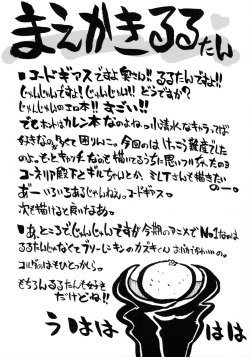 まえがきるるたん
■コードギアスですよ奥さん!! るるたんですね!!
じゃんじゃんですよ!じゃんじゃん!! どうですか?
じゃんじゃんのエロ本!! すごい!!
でもホントはカレン本なのよね。小清水なキャラってば
好きなの多くて困りんこ。今回のはけっこう難産でした
のよ。もっとキッチーなのも描いてるうちに思いついちゃったのョ
コーネリア殿下とギルちんとか、ミレイさんも描きたい
のー。
あ゛ーいろいろあるじゃんねぇ。コードギアス。
次も描けると良いなぁ。
■あ、ところでじゃんじゃんですが今期のアニメでNo.1なのは
るるたんじゃなくて
もちろんるるたんも好き
だけどね!!
うはは
はは